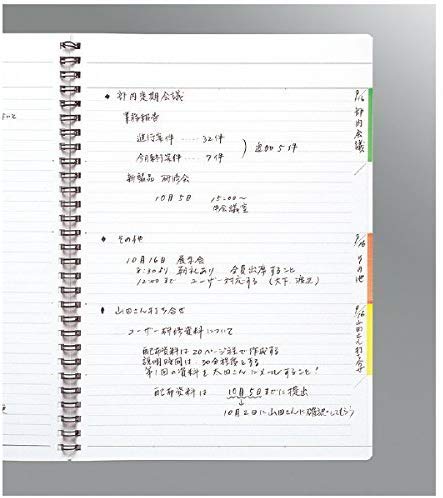 ◆ 部内定期会議
業務報告
進行案件 ----- 32件
今月新規案件 ---- 7件
追加5件
新製品 研修会
10月5日 15:00〜
中会議室
◆ その他
10月16日 展示会
8:30より 朝礼あり 全員出席すること
12:00まで ユーザー対応する (木下、渡辺)
◆ 山田さん打ち合せ
ユーザー研修資料について
配布資料は20ページ程で作成する
説明時間は30分程度とする
第1回の資料を太田さんにメールすること!
配布資料は 10月5日までに提出
10月2日に山田さんに確認してもらう
9/16 部内会議
9/16 その他
9/16 山田さん打ち合せ